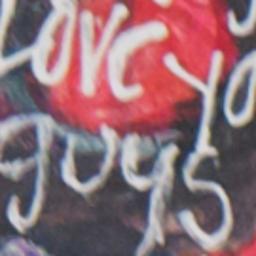 Love yo
guys